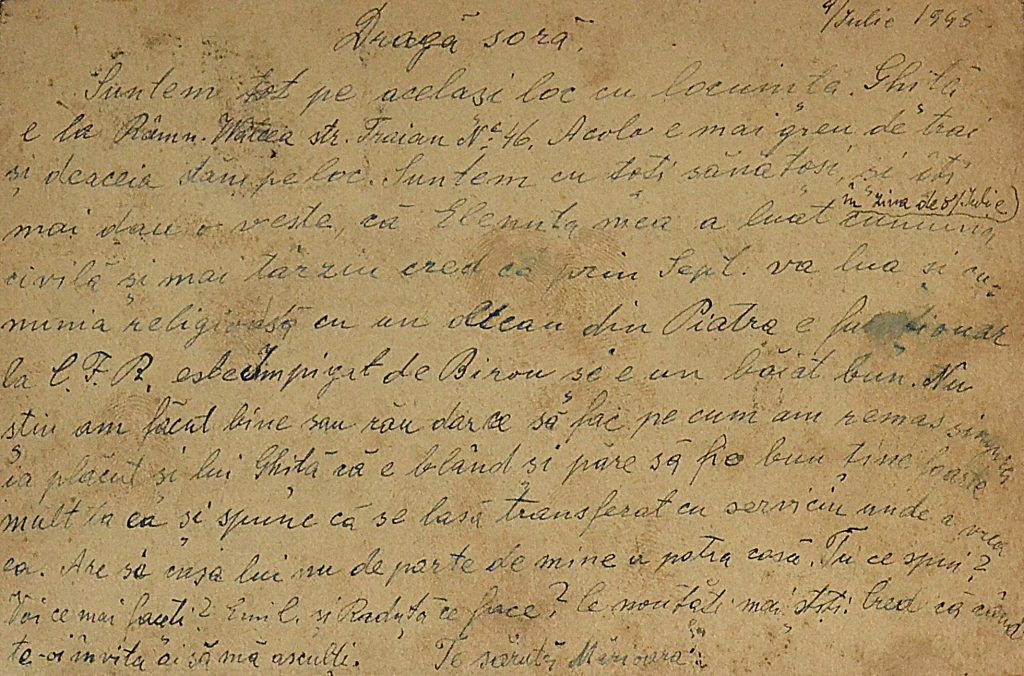 9/Iulie 1945.
Dragă soră.
Suntem tot pe acelasi loc cu locuinta. Ghită
e la Râmn. Vâlcea str. Traian No. 46. Acolo e mai greu de trai
și deaceia stăm pe loc. Suntem cu toți sănătoși, și îți
în ziua de 8/Iulie)
mai dau o veste, că Elenuța mea a luat cununia
civilă și mai târziu cred că prin Sept. va lua si cu-
nunia religioasă cu un oltean din Piatra e funcționar
la C. F. R. este Impiegat de Birou și e un băiat bun. Nu
știu am făcut bine sau rău dar ce să fac pe cum am remas
ia plăcut și lui Ghită că e blând și pare să fie bun tine foarte
mult la ea și spune că se lasă transferat cu serviciu unde a vrea
ea. Are și casa lui nu departe de mine a patra casă. Tu ce spui?
Voi ce mai faceti? Emil. și Raduță ce face? Ce noutăti mai știți. Cred că când
te-oi invita ai să mă asculți. Te sărută Mărioara